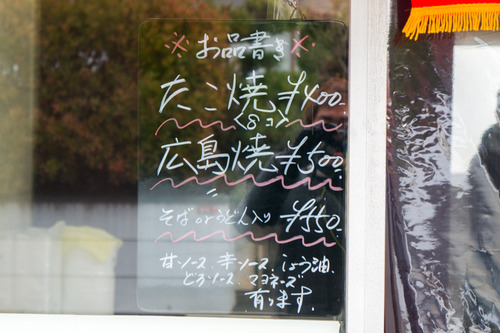 ※お品書き※
たこ焼 ¥400.
<8コ>
広島焼 ¥500.
〃 そばorうどん入り ¥550.
甘ソース、辛ソース、しょう油、
どろソース、マヨネーズ
有ります.